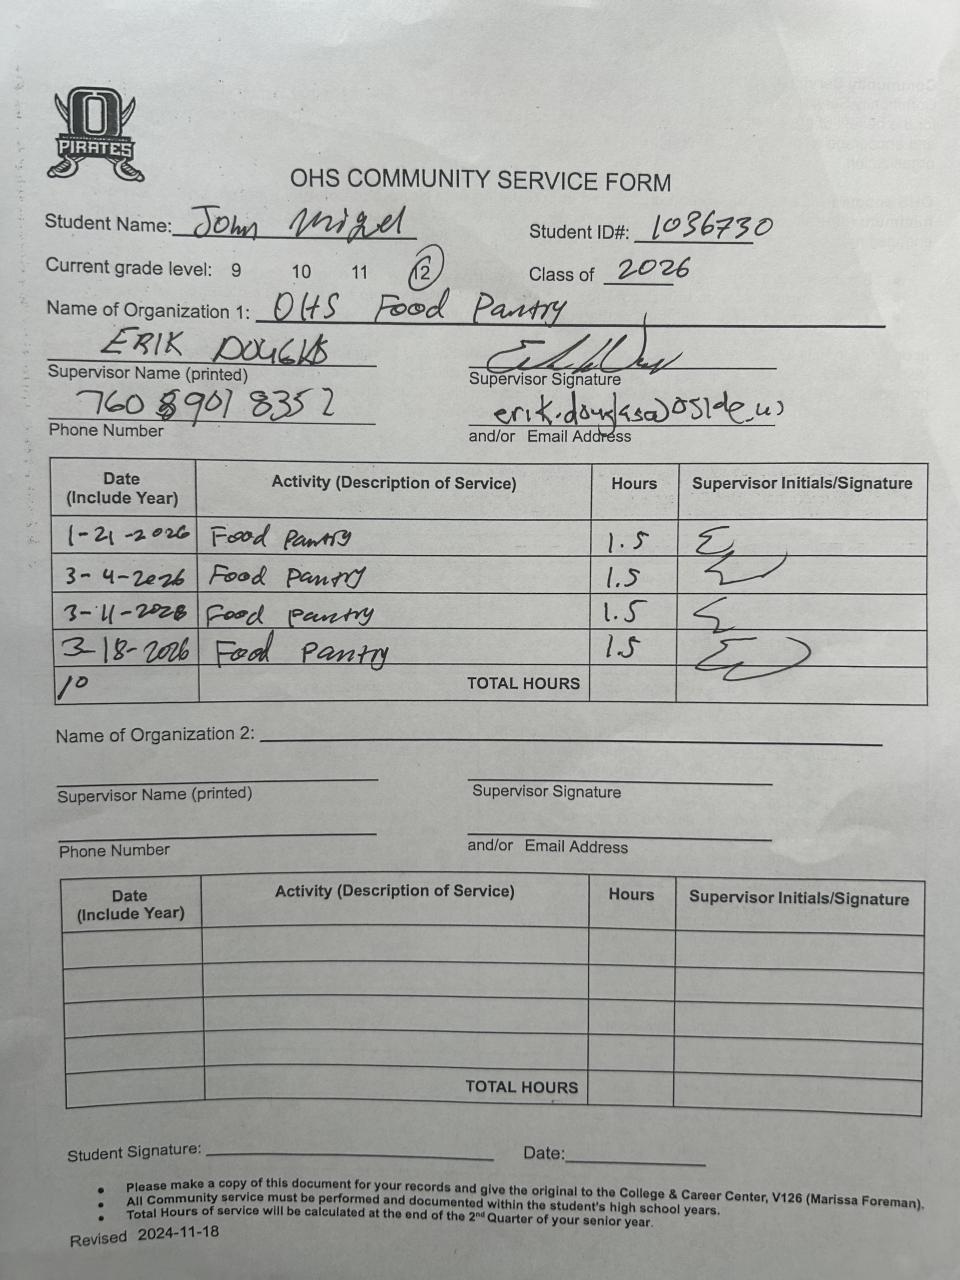 O
PIRATES
OHS COMMUNITY SERVICE FORM
Student Name: John Migel Student ID#: 1036730
Current grade level: 9 10 11 12 Class of 2026
Name of Organization 1: OHS Food Pantry
ERIK DOUGLAS
Supervisor Name (printed) Supervisor Signature
760 8901 8352 erik.douglas@oside.us
Phone Number and/or Email Address
Date (Include Year) Activity (Description of Service) Hours Supervisor Initials/Signature
1-21-2026 Food Pantry 1.5
3-4-2026 Food Pantry 1.5
3-11-2026 Food Pantry 1.5
3-18-2026 Food Pantry 1.5
10 TOTAL HOURS
Name of Organization 2:
Supervisor Name (printed) Supervisor Signature
Phone Number and/or Email Address
Date (Include Year) Activity (Description of Service) Hours Supervisor Initials/Signature
TOTAL HOURS
Student Signature: Date:
• Please make a copy of this document for your records and give the original to the College & Career Center, V126 (Marissa Foreman).
• All Community service must be performed and documented within the student's high school years.
• Total Hours of service will be calculated at the end of the 2nd Quarter of your senior year.
Revised 2024-11-18